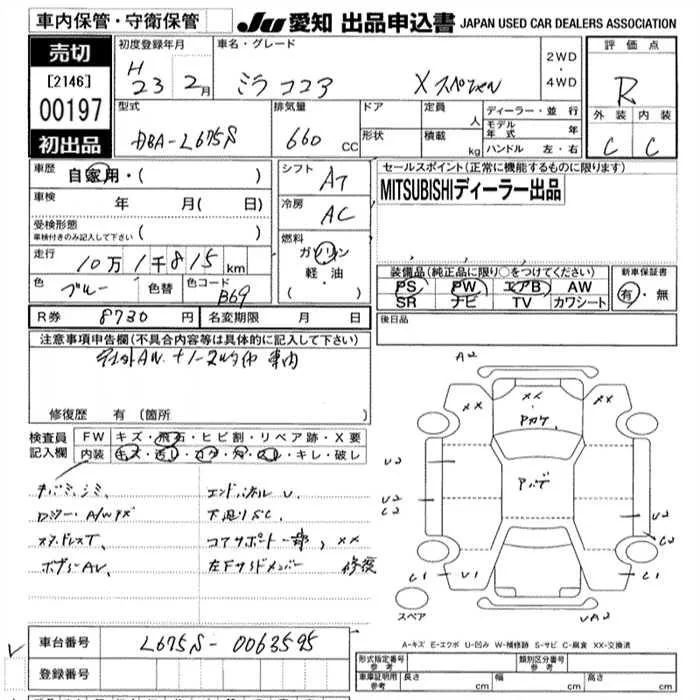 車内保管・守衛保管
JU 愛知 出品申込書 JAPAN USED CAR DEALERS ASSOCIATION
売切
[2146]
00197
初出品
初度登録年月
H
23年 2月
車名・グレード
ミラ ココア Xスペシャル
2WD
・
4WD
評価点
R
外装 内装
C C
型式
DBA-L675S
排気量
660 CC
ドア
形状
定員 人
積載 kg
ディーラー・並行
モデル年式 年
ハンドル 左・右
車歴
自家用・( )
車検 年 月( 日)
受検形態
車検付きのみ記入して下さい ( )
走行 10万1千815km
色 ブルー 色替 色コード B69
シフト AT
冷房 AC
燃料
ガソリン
軽・油
( )
セールスポイント(正常に機能するものに限ります)
MITSUBISHIディーラー出品
装備品(純正品に限り○をつけてください)
PS PW エアB AW
SR ナビ TV カワシート
新車保証書
有・無
R券 8730円 名変期限 月 日
後日品
注意事項申告欄(不具合内容等は具体的に記入して下さい)
車内
修復歴 有(箇所
検査員
記入欄
FW キズ・飛石・ヒビ割・リペア跡・X要
内装 キズ・汚レ・コゲ・穴・スレ・キレ・破レ
エンドパネルU
下廻りSC
コアサポート一部、XX
左Fサイドメンバー 修復
A2
XX
XX
XX
Aカケ
U2
U2
C2
U2
C2
C1
U1
C1
UA2
スペア
A-キズ E-エクボ U-凹み W-補修跡 S-サビ C-腐食 XX-交換済
車台番号 L675S-0063595
登録番号
形式指定番号
参考
類別区分番号
参考
車庫証明用
参考
長さ cm 幅 cm 高さ cm